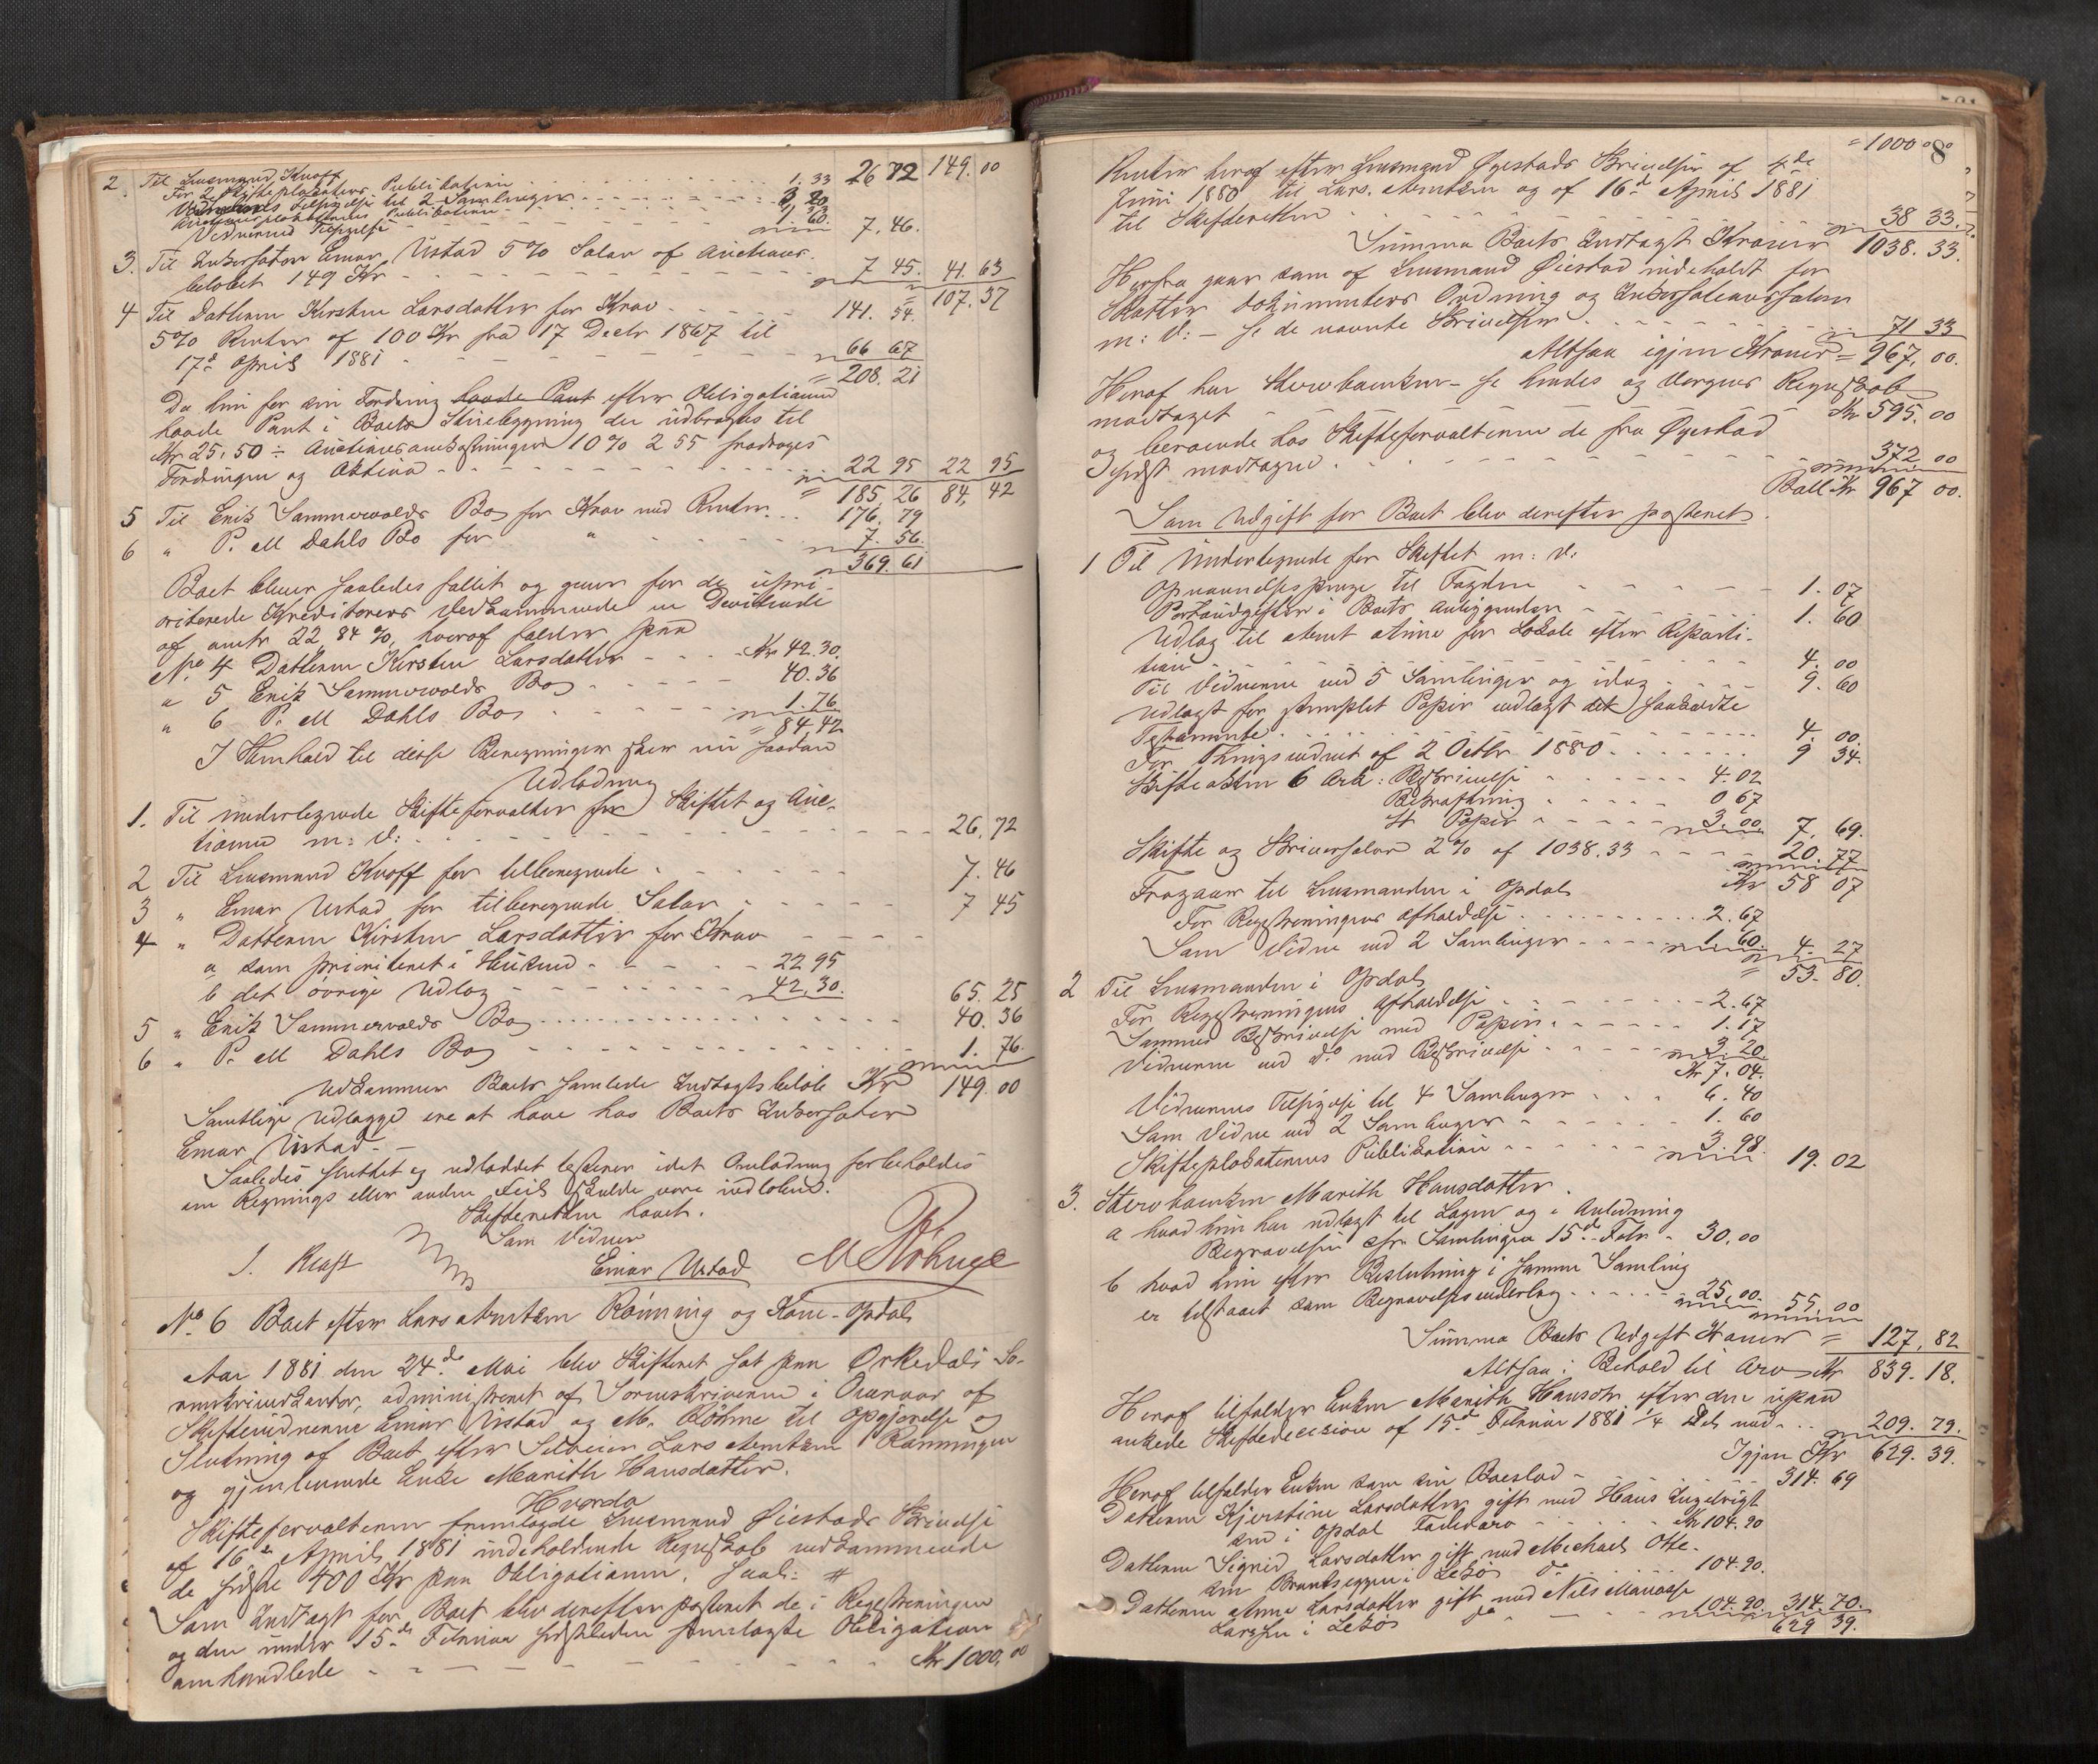 2. Til Lensmand Knoff 26 72 149.00
For 2 Skifteplakaters Publikation 1.33
Vidnernes Tilsigelse til 2 Samlinger 3 20
Auctionsplakatens Publikation 1.33
Vidnerned Tilsigelse 1.60. 7.46.
3. Til Inkassator Einar Urstad 5% Salar af Auctions-
beløbet 149 Kr 7 45. 41.63
= 107.37
4 Til Datteren Kirsten Larsdatter for Krav 141.54.
5% Renter af 100 Kr fra 17 Decbr 1867 til
17de April 1881 66 67
= 208.21
Da hun for sin Fordring havde Pant efter Obligationen
havde Pant i Boets Huusbygning der udbragtes til
Kr 25,50 ÷ Auctionsomkostninger 10% 2 55 fradrages
Fordringen og Aktiva 22 95 22 95
= 185.26 84,42
5 Til Erik Sammervolds Bo for Krav med Renter 176.79
6 " P. M Dahls Bo for " 7.56.
369.61
Boet bliver saaledes fallit og giver for de upri-
oriterede Kreditorers Vedkommende en Dividende
af omtr 22,84 %, hvoraf falder paa
No 4 Datteren Kirsten Larsdatter Kr 42.30.
" 5 Erik Sammervolds Bo 40.36
" 6 P. M Dahls Bo 1.76.
= 84.42
I Henhold til disse Beregninger skeer nu saadan
Udlodning
1. Til undertegnede Skifteforvalter for Skiftet og Auc-
tionen m: v: 26.72
2 Til Lensmand Knoff for tilberegnede 7.46
3 " Einar Urstad for tilberegnede Salar 7 45
4 " Datteren Kirsten Larsdatter for Krav
a som prioriteret i Huset 22 95
b det øvrige Udlæg 42,30. 65.25
5 " Erik Sammervolds Bo 40.36
6 " P. M Dahls Bo 1.76.
Udkommer Boets samlede Indtægtsbeløb Kr 149.00
Samtlige Udlægge ere at hæve hos Boets Inkassator
Einar Urstad. –
Saaledes sluttet og udloddet bliver idet Omlodning forbeholdes
om Regnings eller anden Feil skulde være indløbet.
Skifteretten hævet.
Som Vidner
J. Kraft Einar Urstad M Röhme
No 6 Boet efter Lars Arntsen Rönning og Kone – Opdal
Aar 1881 den 24de Mai blev Skifteret sat paa Orkedals So-
renskriverkontor, administreret af Sorenskriveren i Overvær af
Skiftevidnerne Einar Urstad og M. Röhme til Opgjørelse og
Slutning af Boet efter Selveier Lars Arntsen Rønningen
og gjenlevende Enke Marith Hansdatter.
Hvorda
Skifteforvalteren fremlagde Lensmand Øiestads Skrivelse
af 16de April 1881 indeholdende Regnskab vedkommende
de sidste 400 Kr paa Obligationen. saal: #
Som Indtægt for Boet blev derefter posteret de i Registreringen
og den under 15de Februar sidstleden fremlagte Obligation
omhandlede Kr 1000,00
8
= 1000 00
Renter heraf efter Lensmand Øyestads Skrivelser af 4de
Juni 1880 til Lars Arntsen og af 16de April 1881
til Skifteretten 38 33.
Summa Boets Indtægt Kroner 1038.33.
Herfra gaar som af Lensmand Øiestad indeholdt for
Skatter Dokumenters Ordning og Inkassationssalær
m: v: – se de nævnte Skrivelser 71 33
Altsaa igjen Kroner = 967,00.
Heraf har Sterboenken – se hendes og Verges Regnskab
modtaget Kr 595.00
og beroende hos Skifteforvalteren de fra Øyestad
sidst modtagne 372 00
Ball Kr 967 00.
Som Udgift for Boet blev derefter posteret.
1 Til Undertegnede for Skiftet m: v:
Opnævnelsespenge til Fogden 1.07
Portoudgifter i Boets Anliggender 1.60
Udlæg til Arnt Arne for Lokale efter Reparti-
tion 4.00
Til Vidnerne ved 5 Samlinger og idag 9.60
Udlagt for stemplet Papir vedlagt det saakaldte
Testamente 4.00.
For Thingsvidnet af 2 Octbr 1880 9 34.
Skifteakten 6 Ark: Beskrivelse 4.02
Bekræftning 0 67
St Papir 3.00. 7.69.
Skifte og Skriversalær 2% af 1038.33 20.77
Kr 58 07
Fragaar til Lensmanden i Opdal
For Registreringens Afholdelse 2.67
Som Vidne ved 2 Samlinger 1.60. 4.27
= 53.80.
2 Til Lensmanden i Opdal
For Registreringens Afholdelse 2.67
Sammes Beskrivelse med Papir 1.17
Vidnerne ved do med Beskrivelse 3.20.
Kr 7.04.
Vidnernes Tilsigelse til 4 Samlinger 6.40
Som Vidne ved 2 Samlinger 1.60
Skifteplakaternes Publikation 3.98. 19.02
3. Sterboenken Marith Hansdatter.
a hvad hun har udlagt til Læge og i Anledning
Begravelsen cfr. Samlingen 15de Febr. 30.00
b hvad hun efter Beslutning i samme Samling
er tilstaaet som Begravelsesvederlag 25,00. 55,00
Summa Boets Udgift Kroner = 127,82
Altsaa i Behold til Arv Kr 839.18.
Heraf tilfalder Enken Marith Hansdtr efter den upaa
ankede Skiftedecision af 15de Februar 1881 1/4 Del med 209.79.
Igjen Kr 629.39.
Heraf tilfalder Enken som sin Boeslod 314.69
Datteren Kjerstine Larsdatter gift med Hans Ingebrigt
sen i Opdal Fædrearv Kr 104.90
Datteren Sigrid Larsdatter gift med Michael Otte-
sen Brandseggen i Leksø do 104.90.
Datteren Anna Larsdatter gift med Nils Manasse
Larssen i Leksø do 104.90. 314.70.
629 39.